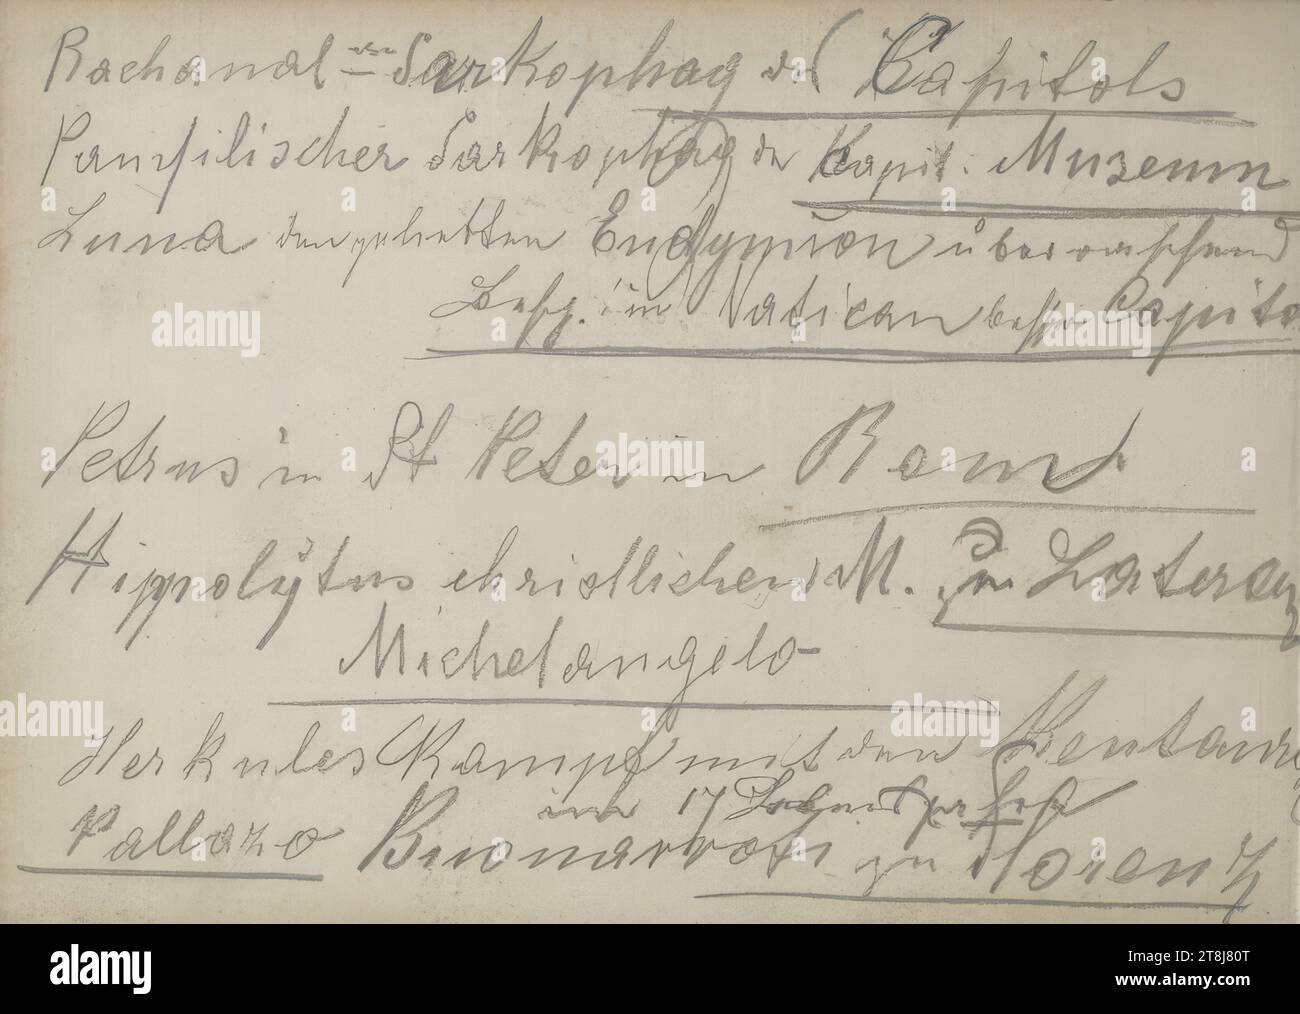 Bachanal – Sarkophag des Capitols
Pamfilischer Sarkophag der Kapit. Muzeum
Luna den geliebten Endymion überraschend
im Vatican Capitol
Petrus in St Peter in Rom
Hippolÿtus christlicher M. im Lateran
Michelangelo
Herkules Kampf mit den Kentaur
im 17
Pallazo Buonarroti zu Florenz
alamy
alamy
alamy
alamy
alamy
alamy
a
alamy
Image ID: 2T8J80T
www.alamy.com